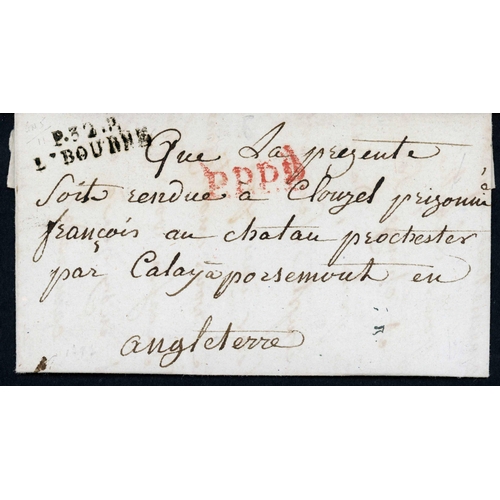 P.32.P.
LIBOURNE
Que La prezente
P.P.P.P.
soit rendue a Clouzel prizonnié
françois au chatau prochester
par Calay a porsemout en
angleterre